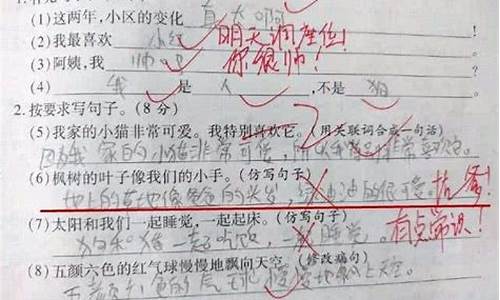 (1)这两年,小区的变化 真大啊
(2)我最喜欢 小红 明天调座位!
(3)阿姨,我 帅吧 你很帅!
(4) 我 是 人 ,不是 狗
2.按要求写句子。(8分)
(5)我家的小猫非常可爱。我特别喜欢它。(用关联词合成一句话)
因为我家的小猫非常可爱,所以我 非常喜欢它。
(6)枫树的叶子像我们的小手。(仿写句子)
地上的草地像爸爸的头发,绿油油的很可爱。找爹!
(7)太阳和我们一起睡觉,一起起床。(仿写句子)
狗和猪一起吃饭,一起睡觉。 有点常识!
(8)五颜六色的红气球慢慢地飘向天空。(修改病句)
五颜六色的气球慢慢地飘上天空。